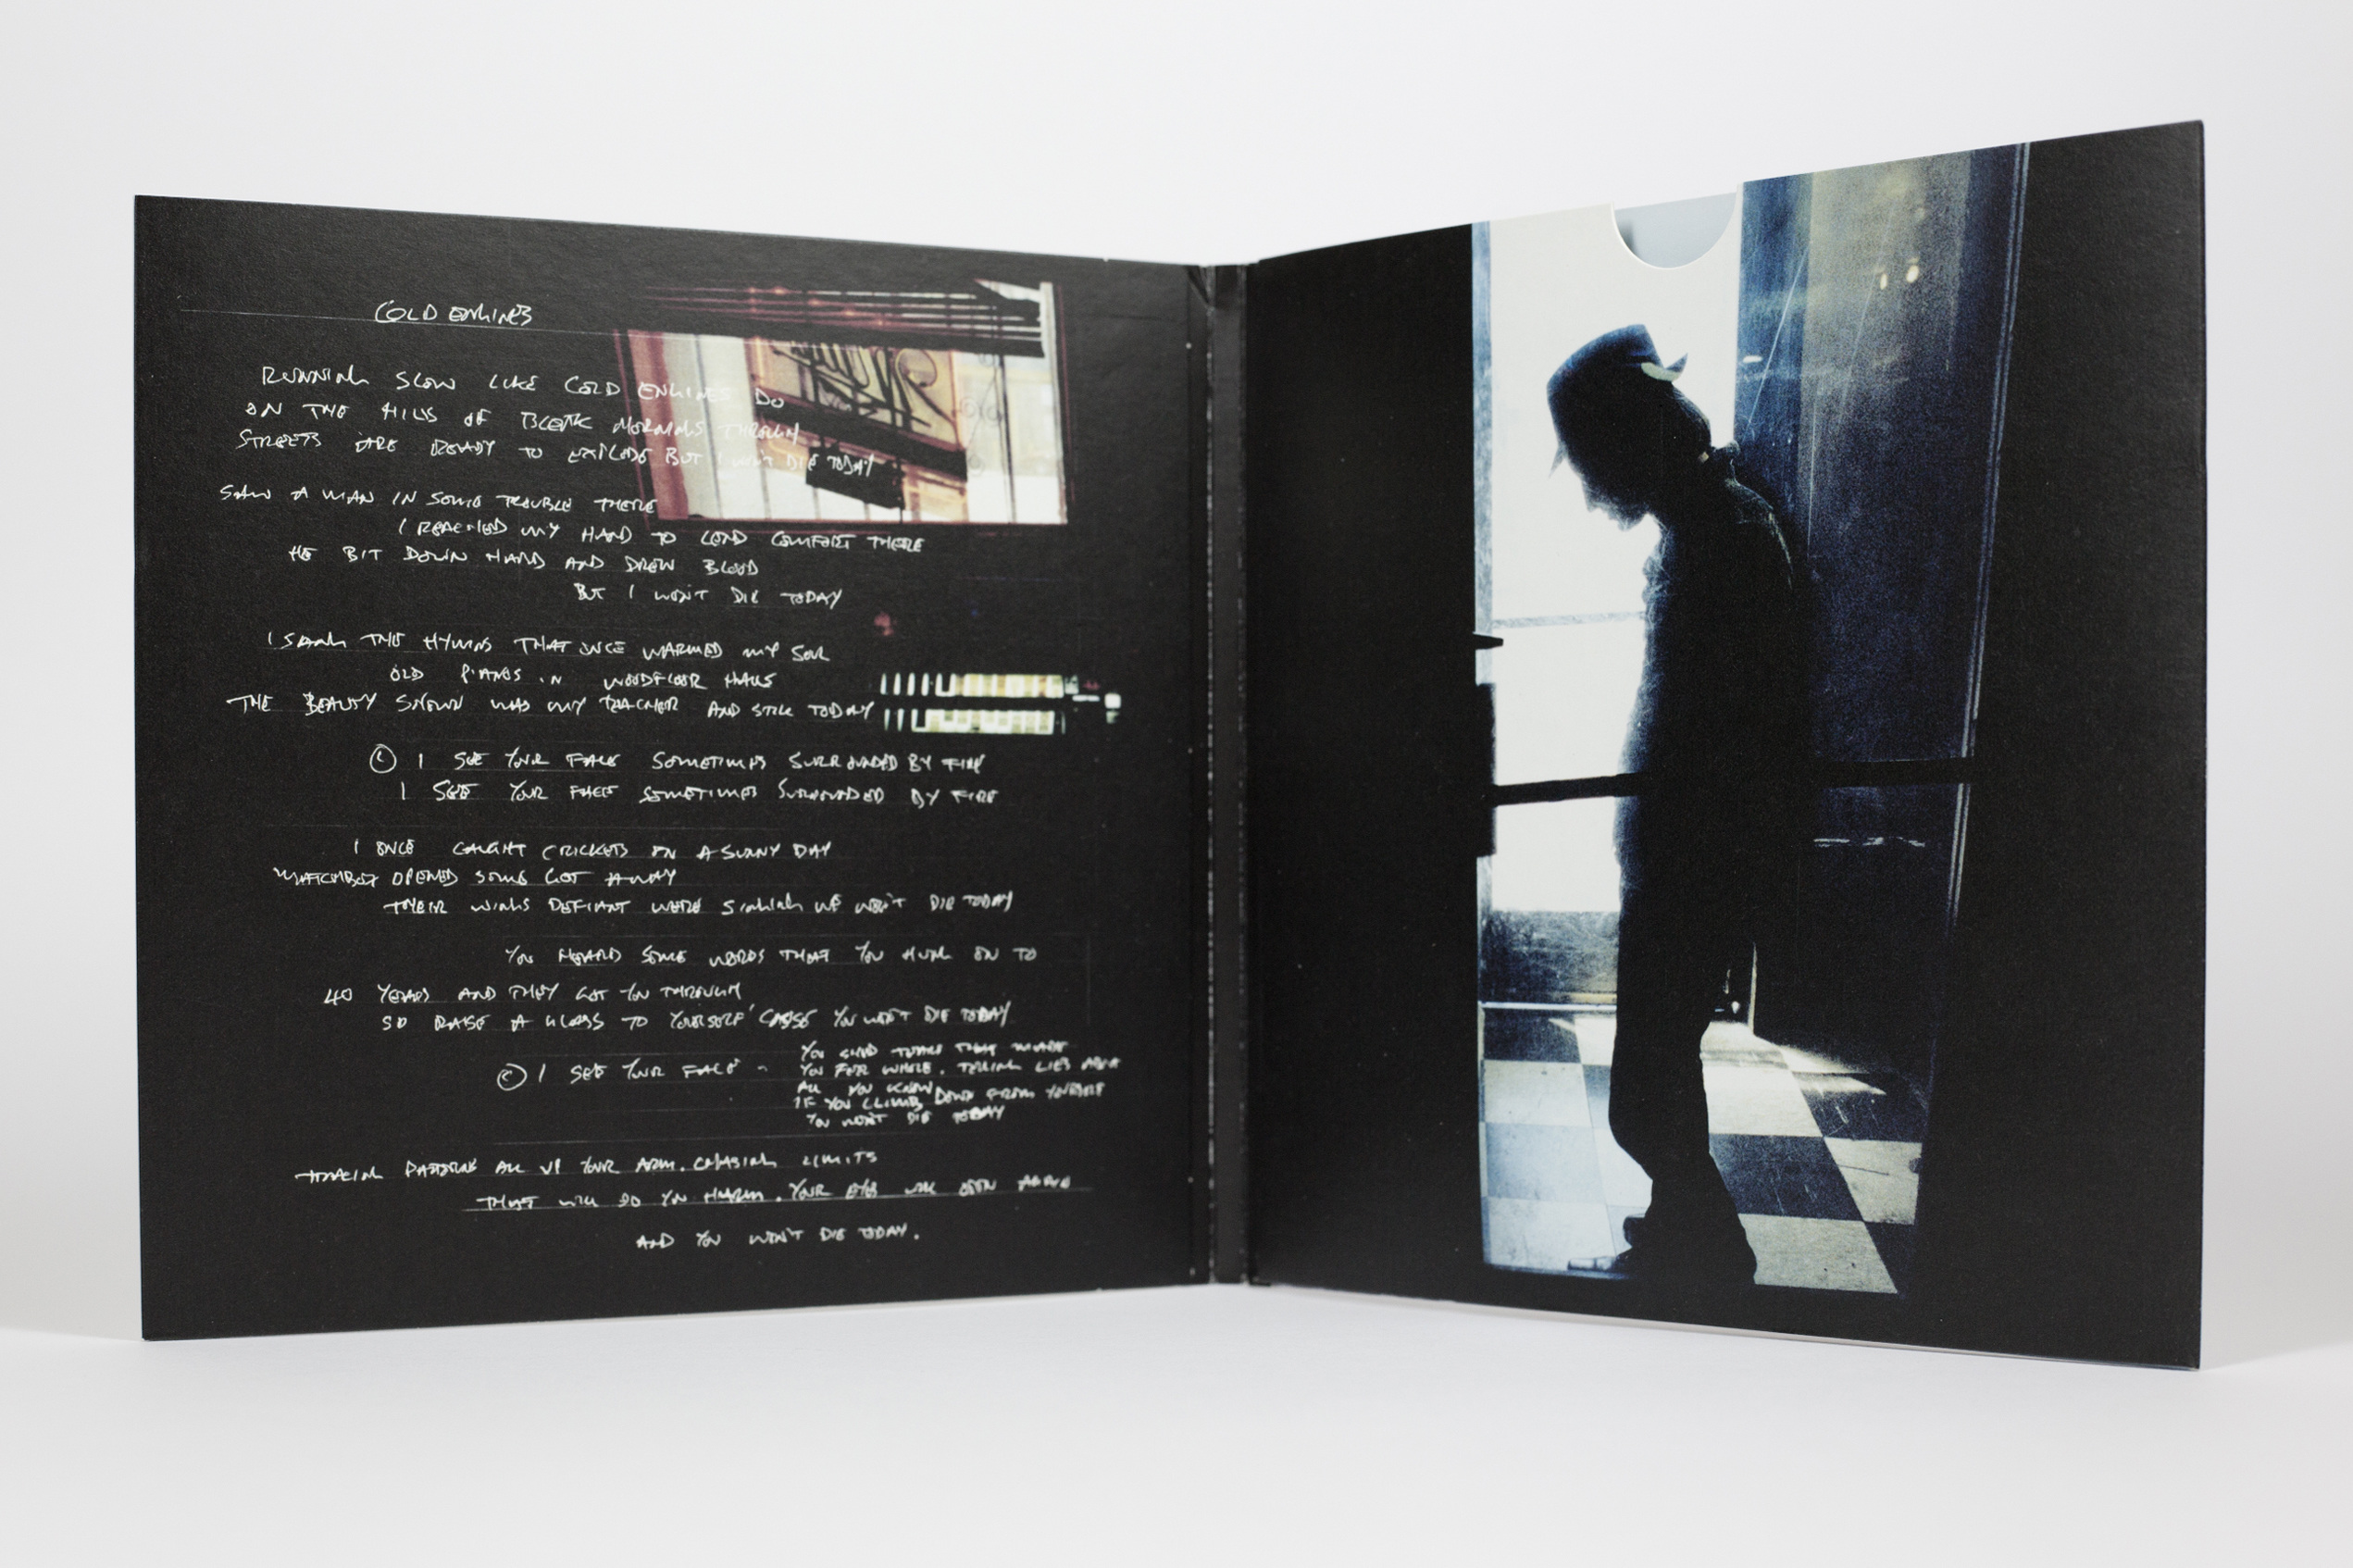 COLD ENGINES
RUNNING SLOW LIKE COLD ENGINES DO
ON THE HILLS OF BLEAK MORNINGS THROUGH
STREETS ARE READY TO EXPLODE BUT I WON'T DIE TODAY
SAW A MAN IN SOME TROUBLE THERE
I REACHED MY HAND TO LEND COMFORT THERE
HE BIT DOWN HARD AND DREW BLOOD
BUT I WON'T DIE TODAY
I SANG THE HYMNS THAT ONCE WARMED MY SOUL
OLD PIANOS IN WOODFLOOR HALLS
THE BEAUTY SHOWN WAS MY TEACHER AND STILL TODAY
(C) I SEE YOUR FACE SOMETIMES SURROUNDED BY FIRE
I SEE YOUR FACE SOMETIMES SURROUNDED BY FIRE
I ONCE CAUGHT CRICKETS ON A SUNNY DAY
MATCHBOX OPENED SOME GOT AWAY
THEIR WINGS DEFIANT WERE SINGING WE WON'T DIE TODAY
YOU HEARD SOME WORDS THAT YOU HUNG ON TO
40 YEARS AND THEY GOT YOU THROUGH
SO RAISE A GLASS TO YOURSELF 'CAUSE YOU WON'T DIE TODAY
(C) I SEE YOUR FACE -
YOU THAT MADE
YOU FOR WHOLE. TELLING LIES ARE
ALL YOU KNOW
IF YOU CLIMB DOWN FROM YOURSELF
YOU WON'T DIE TODAY
TRACING PATTERNS ALL UP YOUR ARM. CHASING LIMITS
THAT WILL DO YOU HARM. YOUR EYES WILL OPEN AGAIN
AND YOU WON'T DIE TODAY.